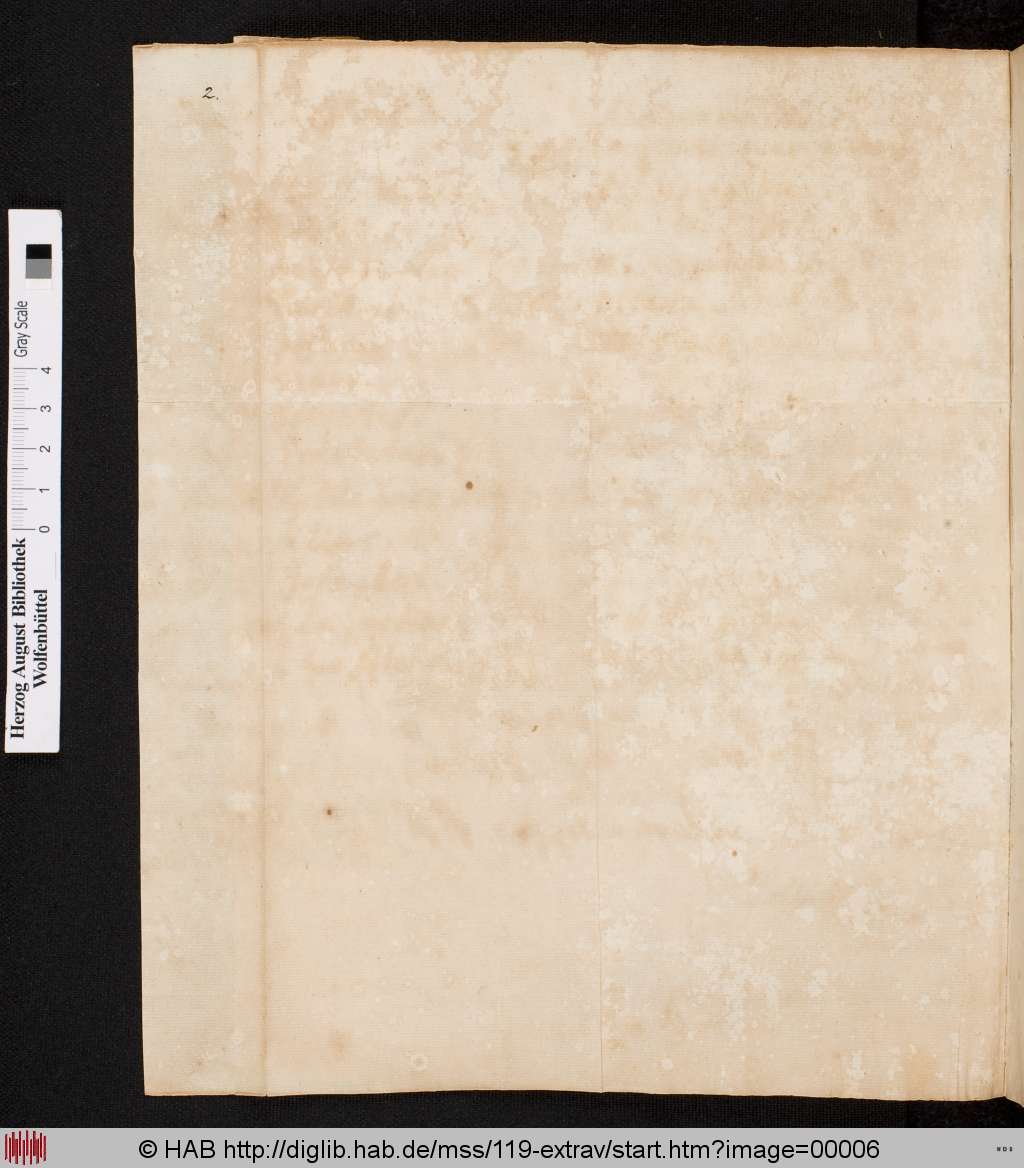 2.
Gray Scale
4
3
2
1
0
Herzog August Bibliothek
Wolfenbüttel
© HAB http://diglib.hab.de/mss/119-extrav/start.htm?image=00006